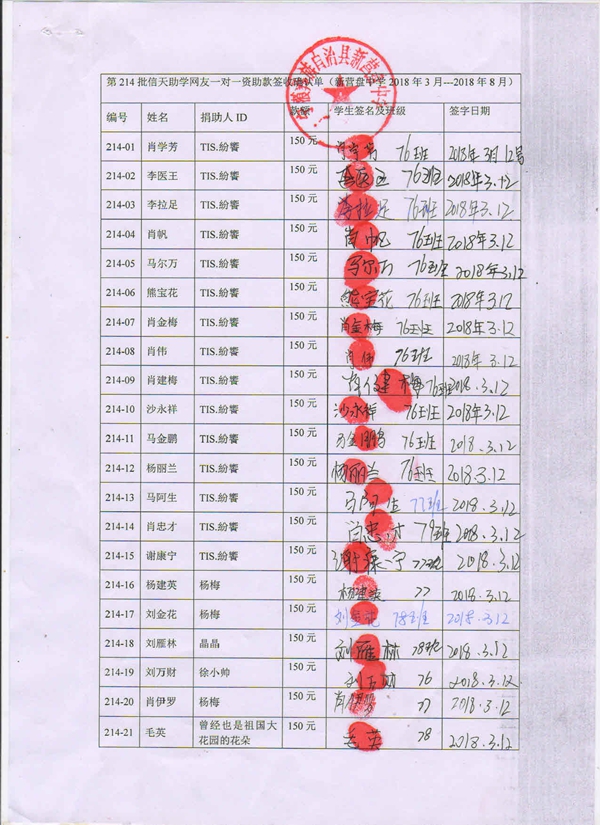 第 214 批信天助学网友一对一资助款签收确认单（新营盘中学 2018 年 3 月---2018 年 8 月）
编号 姓名 捐助人 ID 款额 学生签名及班级 签字日期
214-01 肖学芳 TIS.纷饗 150 元 肖学芳 76班 2018年3月12号
214-02 李医王 TIS.纷饗 150 元 李医王 76班 2018年3.12
214-03 李拉足 TIS.纷饗 150 元 李拉足 76班 2018年3.12
214-04 肖帆 TIS.纷饗 150 元 肖帆 76班 2018年3.12
214-05 马尔万 TIS.纷饗 150 元 马尔万 76班 2018年3.12
214-06 熊宝花 TIS.纷饗 150 元 熊宝花 76班 2018年3.12
214-07 肖金梅 TIS.纷饗 150 元 肖金梅 76班 2018年3.12
214-08 肖伟 TIS.纷饗 150 元 肖伟 76班 2018年3.12
214-09 肖建梅 TIS.纷饗 150 元 肖建梅 76班 2018.3.12
214-10 沙永祥 TIS.纷饗 150 元 沙永祥 76班 2018年3.12
214-11 马金鹏 TIS.纷饗 150 元 马金鹏 76班 2018.3.12
214-12 杨丽兰 TIS.纷饗 150 元 杨丽兰 76班 2018.3.12
214-13 马阿生 TIS.纷饗 150 元 马阿生 77班 2018.3.12
214-14 肖忠才 TIS.纷饗 150 元 肖忠才 79班 2018.3.12
214-15 谢康宁 TIS.纷饗 150 元 谢康宁 77班 2018.3.12
214-16 杨建英 杨梅 150 元 杨建英 77 2018.3.12
214-17 刘金花 杨梅 150 元 刘金花 78班 2018.3.12
214-18 刘雁林 晶晶 150 元 刘雁林 78班 2018.3.12
214-19 刘万财 徐小帅 150 元 刘万财 76 2018.3.12
214-20 肖伊罗 杨梅 150 元 肖伊罗 77 2018.3.12
214-21 毛英 曾经也是祖国大 150 元 毛英 78 2018.3.12
花园的花朵